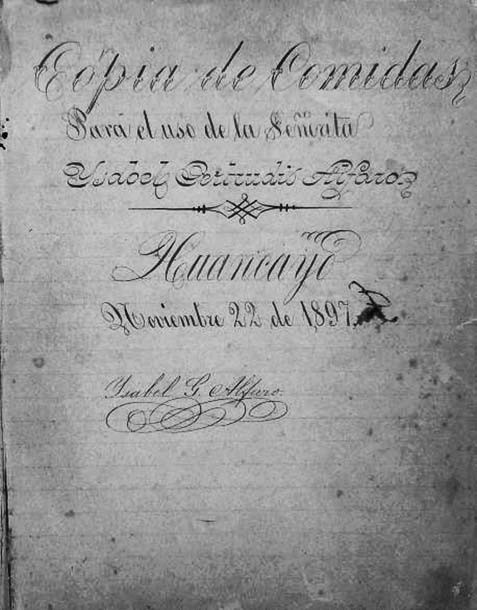 Copia de Comidas
Para el uso de la Señorita
Ysabel Gertrudis Alfaro
Huancayo
Noviembre 22 de 1897.
Isabel G. Alfaro.